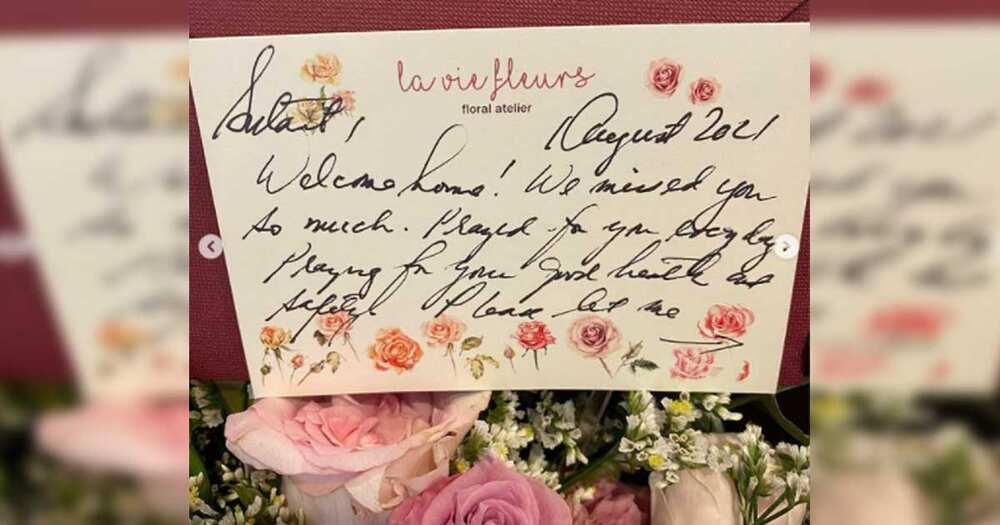 la vie fleurs
floral atelier
1 August 2021
Welcome home! We missed you
so much. Prayed for you every day
Praying for your good health and
safety! Please let me